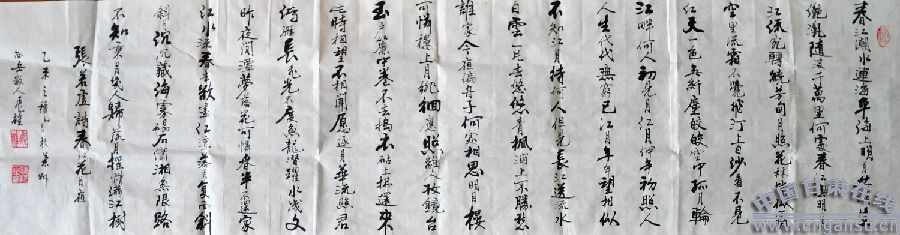 春江潮水連海平海上明月共潮生
灔灔隨波千萬里何處春江無月明
江流宛轉繞芳甸月照花林皆似霰
空里流霜不覺飛汀上白沙看不見
江天一色無纖塵皎皎空中孤月輪
江畔何人初見月江月何年初照人
人生代代無窮已江月年年望相似
不知江月待何人但見長江送流水
白雲一片去悠悠青楓浦上不勝愁
誰家今夜扁舟子何處相思明月樓
可憐樓上月徘徊應照離人妝鏡台
玉戶簾中卷不去搗衣砧上拂還來
此時相望不相聞願逐月華流照君
鴻雁長飛光不度魚龍潛躍水成文
昨夜閑潭夢落花可憐春半不還家
江水流春去欲盡江潭落月復西斜
斜月沉沉藏海霧碣石瀟湘無限路
不知乘月幾人歸落月搖情滿江樹
張若虛詩春江花月夜
乙未之穐
中国甘肃在线
www.cngansu.cn